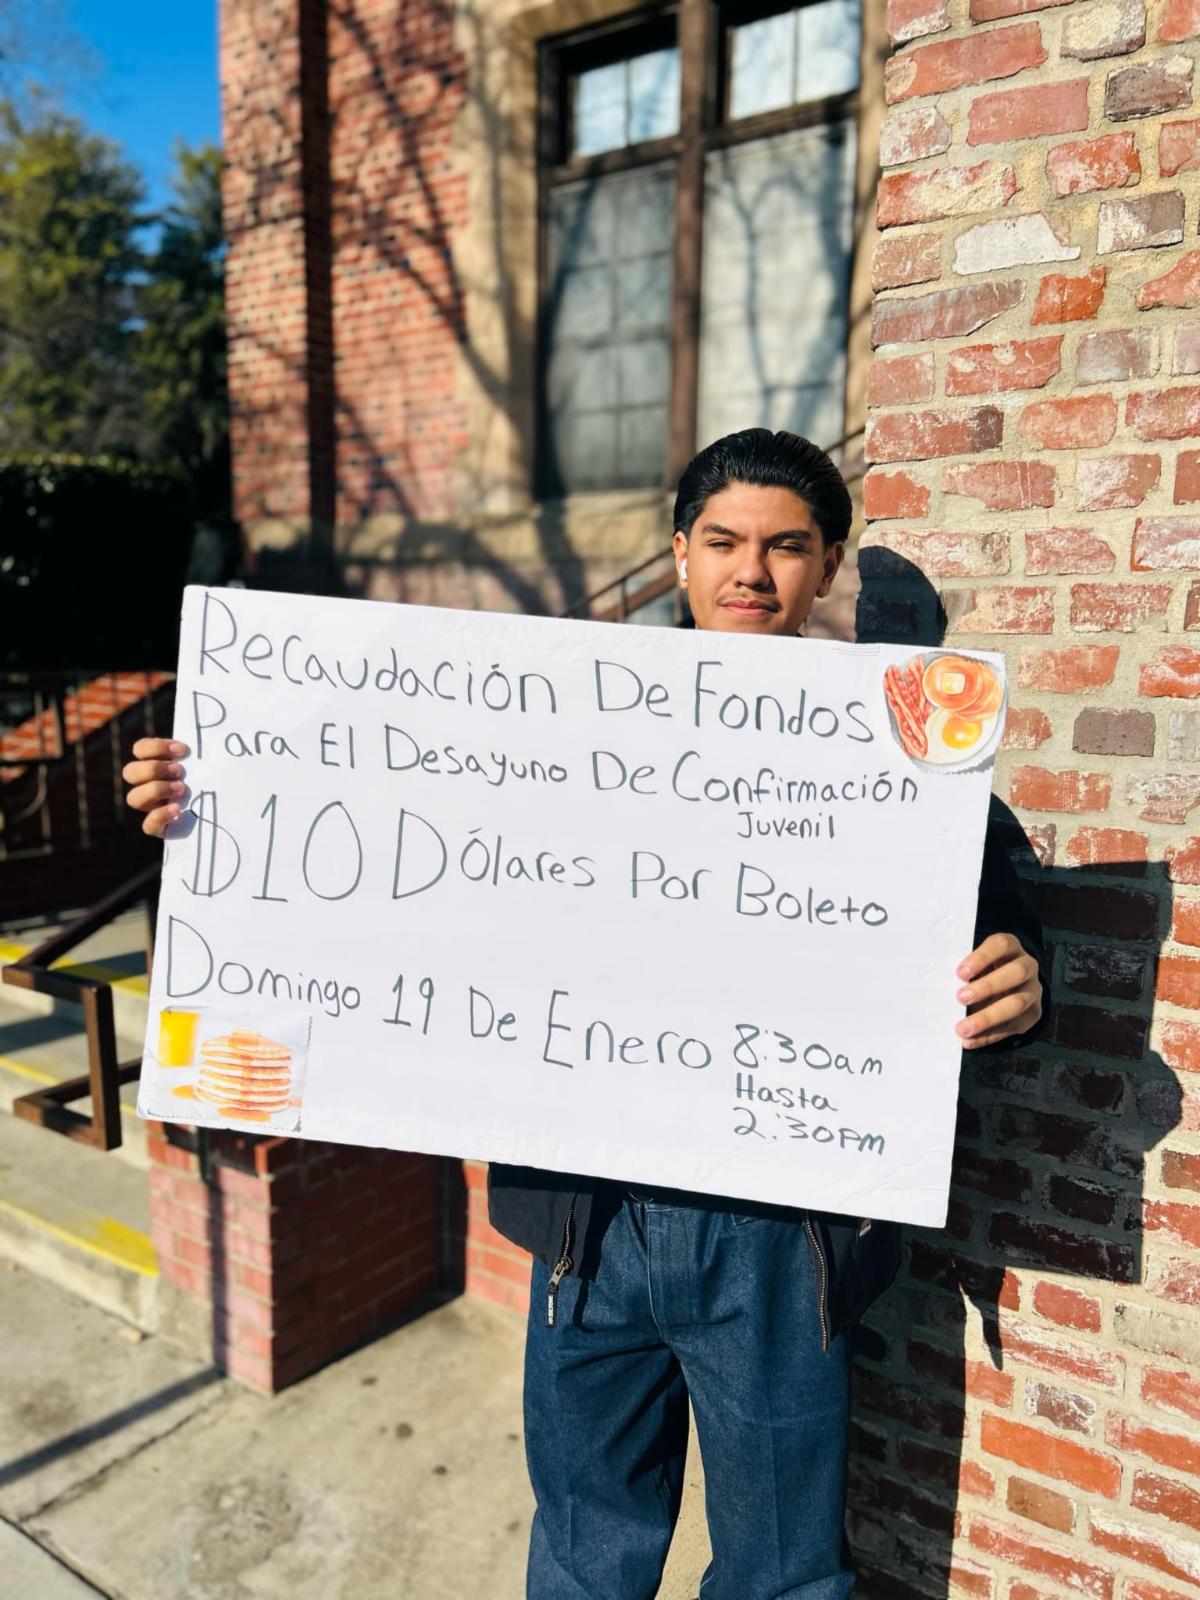 Recaudación De Fondos
Para El Desayuno De Confirmación
Juvenil
$10 Dólares Por Boleto
Domingo 19 De Enero 8:30am
Hasta
2:30PM